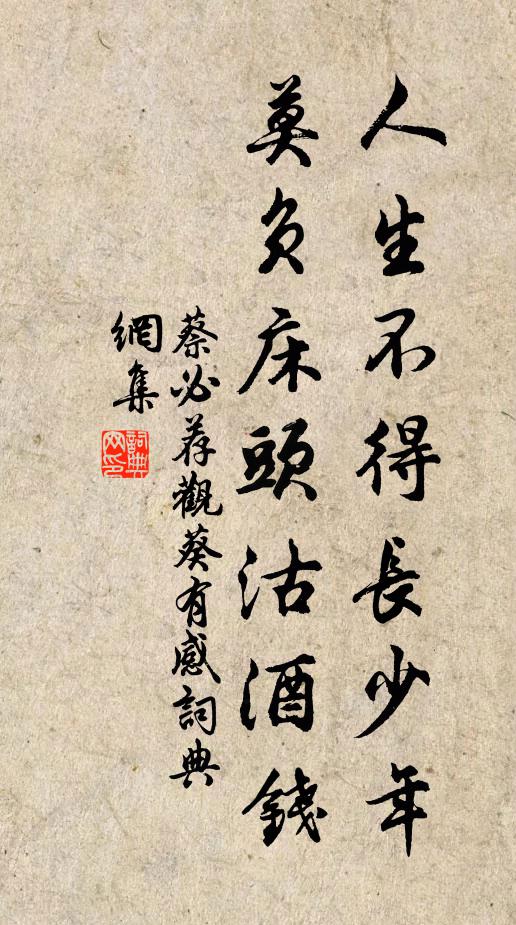 人生不得長少年
莫負床頭沽酒錢
蔡必荐觀葵有感詞典
網集
詞典
网印